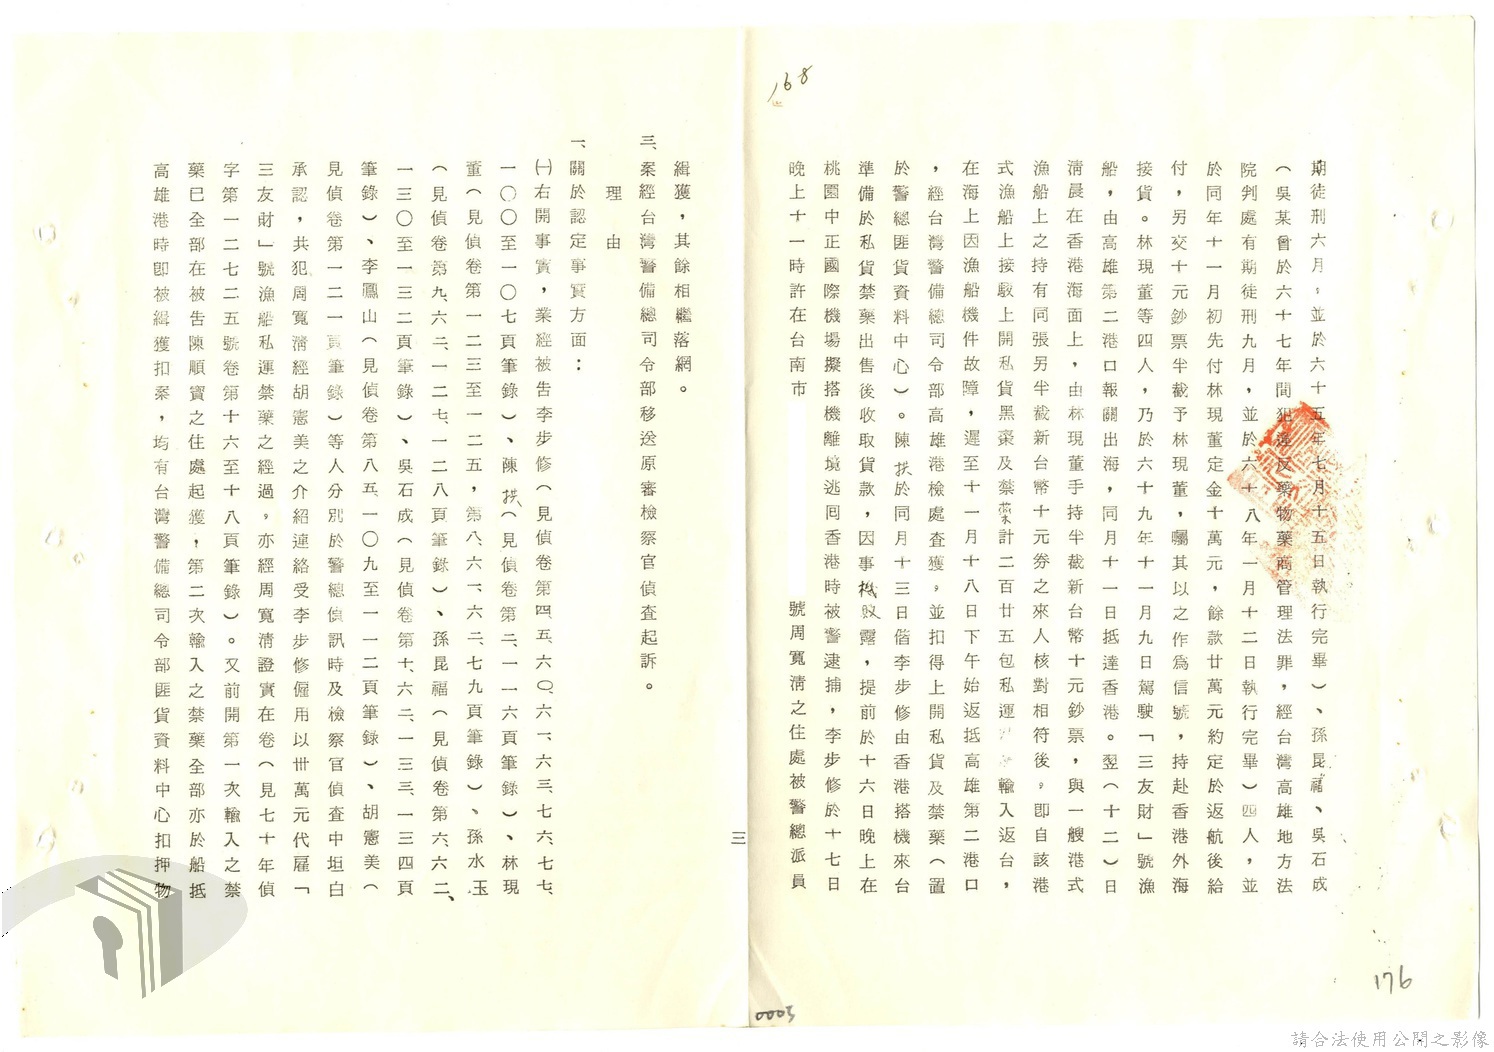 168
期徒刑六月，並於六十五年七月十五日執行完畢）、孫昆福、吳石成
（吳某曾於六十七年間犯違反藥物藥商管理法罪，經台灣高雄地方法
院判處有期徒刑九月，並於六十八年一月十二日執行完畢）四人，並
於同年十一月初先付林現董定金十萬元，餘款廿萬元約定於返航後給
付，另交十元鈔票半截予林現董，囑其以之作為信號，持赴香港外海
接貨。林現董等四人，乃於六十九年十一月九日駕駛「三友財」號漁
船，由高雄第二港口報關出海，同月十一日抵達香港。翌（十二）日
清晨在香港海面上，由林現董手持半截新台幣十元鈔票，與一艘港式
漁船上之持有同張另半截新台幣十元券之來人核對相符後。即自該港
式漁船上接駁上開私貨黑棗及禁藥計二百廿五包私運輸入返台，
在海上因漁船機件故障，遲至十一月十八日下午始返抵高雄第二港口
，經台灣警備總司令部高雄港檢處查獲。並扣得上開私貨及禁藥（置
於警總匪貨資料中心）。陳於同月十三日偕李步修由香港搭機來台
準備於私貨禁藥出售後收取貨款，因事機敗露，提前於十六日晚上在
桃園中正國際機場擬搭機離境逃回香港時被警逮捕，李步修於十七日
晚上十一時許在台南市 號周寬清之住處被警總派員
176
0005
三
緝獲，其餘相繼落網。
三、案經台灣警備總司令部移送原審檢察官偵查起訴。
理由
一、關於認定事實方面：
㈠右開事實，業經被告李步修（見偵卷第四五、六〇、六一、六三、七六、七七、
一〇〇至一〇七頁筆錄）、陳（見偵卷第二、一一六頁筆錄）、林現
董（見偵卷第一二三至一二五，第八、六一、六二、七九頁筆錄）、孫水玉
（見偵卷第九、六二、一二七、一二八頁筆錄）、孫昆福（見偵卷第六、六二、
一三〇至一三二頁筆錄）、吳石成（見偵卷第十、六二、一三三、一三四頁
筆錄）、李鳳山（見偵卷第八五、一〇九至一一二頁筆錄）、胡憲美（
見偵卷第一二一頁筆錄）等人分別於警總偵訊時及檢察官偵查中坦白
承認，共犯周寬清經胡憲美之介紹連絡受李步修僱用以卅萬元代雇「
三友財」號漁船私運禁藥之經過。亦經周寬清證實在卷（見七十年偵
字第一二七二五號卷第十六至十八頁筆錄）。又前開第一次輸入之禁
藥已全部在被告陳順寶之住處起獲，第二次輸入之禁藥全部亦於船抵
高雄港時即被緝獲扣案，均有台灣警備總司令部匪貨資料中心扣押物
請合法使用公開之影像